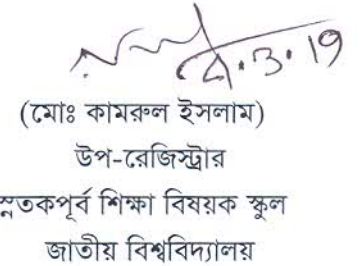 ৫.3.19
(মোঃ কামরুল ইসলাম)
উপ-রেজিস্ট্রার
স্নতকপূর্ব শিক্ষা বিষয়ক স্কুল
জাতীয় বিশ্ববিদ্যালয়